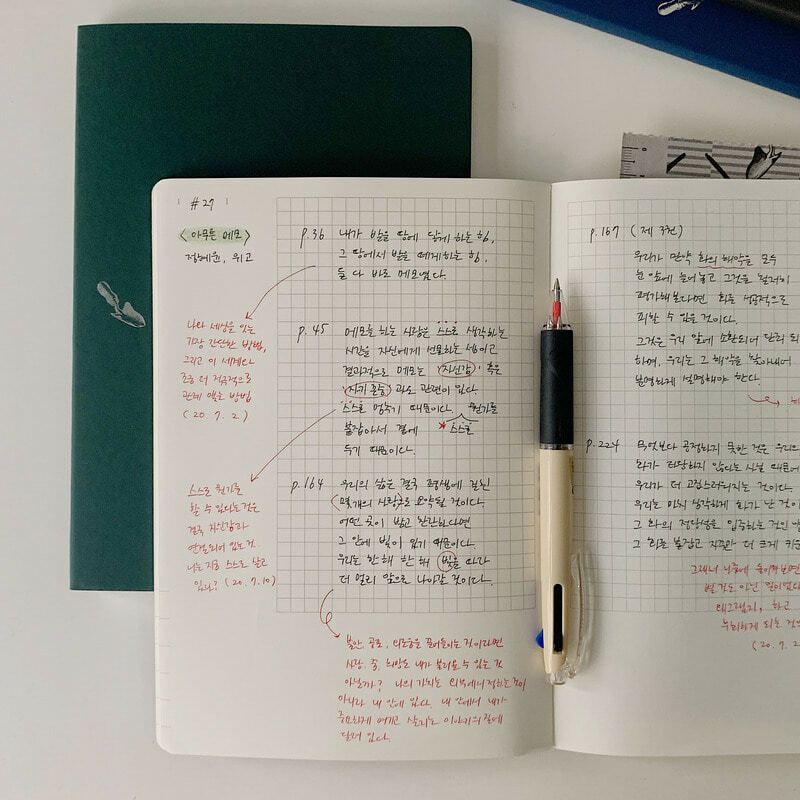 #27
<아무튼 메모>
정혜윤, 위고
p.36 내가 발을 땅에 닿게 하는 힘,
그 땅에서 발을 떼게하는 힘,
둘 다 바로 메모였다.
나와 세상을 잇는
가장 간단한 방법,
그리고 이 세계와
조금 더 적극적으로
관계 맺는 방법
(20.7.2.)
p.45 메모를 하는 사람은 스스로 생각하는
시간을 자신에게 선물하는 셈이고
결과적으로 메모는 '자신감' 혹은
'자기 존중' 과도 관련이 있다.
스스로 멈추기 때문이다. 뭔가를
붙잡아서 곁에 * 스스로
두기 때문이다.
스스로 뭔가를
할 수 있다는것은
결국 자신감과
연결되어 있는 것.
나는 지금 스스로 살고
있나? (20.7.10)
p.164 우리의 삶은 결국 평생에 걸친
몇개의 사랑으로 요약될 것이다.
어떤 곳이 밝고 찬란하다면
그 안에 빛이 있기 때문이다.
우리는 한해 한 해 빛을 따라
더 멀리 앞으로 나아갈 것이다.
불안, 공포, 외로움을 끌어들이는 것이라면
사랑, 꿈, 희망도 내가 불러올 수 있는 것
아닐까? 나의 가치는 외부에서 정하는 것이
아니라 내 안에 있다. 내 안에서 내가
중요하게 여기고 살리는 이야기의 질에
달려 있다.
p.167 (제 3권)
우리가 만약 화의 해악을 모두
눈 앞에 늘어놓고 그것을 철저히
평가해본다면 화를 성공적으로
피할 수 있을 것이다.
그것은 우리 앞에 소환되어 단죄 되
하며, 우리는 그 해악을 찾아내어
분명하게 설명해야 한다.
p.224 무엇보다 공정하지 못한 것은 우리의
화가 타당하지 않다는 사실 때문에
우리가 더 고집스러워지는 것이다.
우리는 마치 생각하게 화가 난 것이
그 화의 정당성을 입증하는 것인 양
그 화를 붙잡고 지금과 더 크게 키운
그래서 나중에 돌이켜보면
별 것도 아닌 일이었다
왜그랬지, 하고
후회하게 되는 것인
(20.7.2